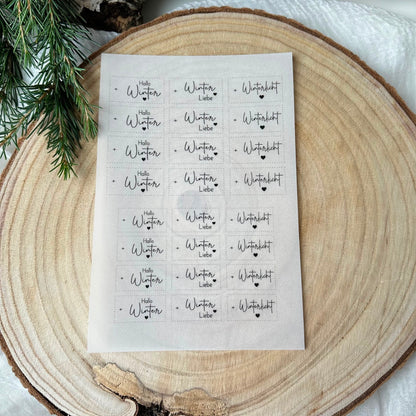 Hallo
Winter
Winter
Liebe
Winterlicht
Hallo
Winter
Winter
Liebe
Winterlicht
Hallo
Winter
Winter
Liebe
Winterlicht
Hallo
Winter
Winter
Liebe
Winterlicht
Hallo
Winter
Winter
Liebe
Winterlicht
Hallo
Winter
Winter
Liebe
Winterlicht
Hallo
Winter
Winter
Liebe
Winterlicht
Hallo
Winter
Winter
Liebe
Winterlicht